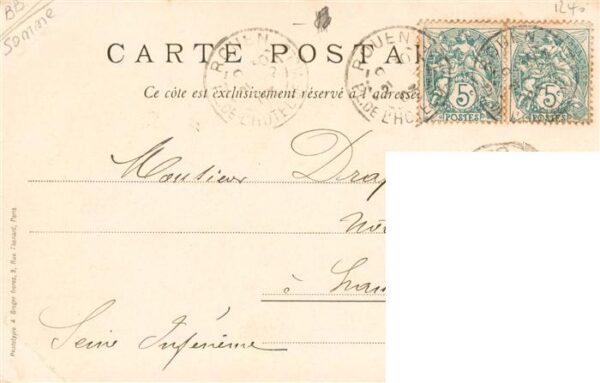 BB
Somme
1240
CARTE POSTA
Ce côté est exclusivement réservé à l'adresse
ROUEN
ROUEN
5c
POSTES
5c
POSTES
Monsieur Drap
à
Seine Inférieure
Prototypie A. Breger freres, 9, Rue Thenard, Paris